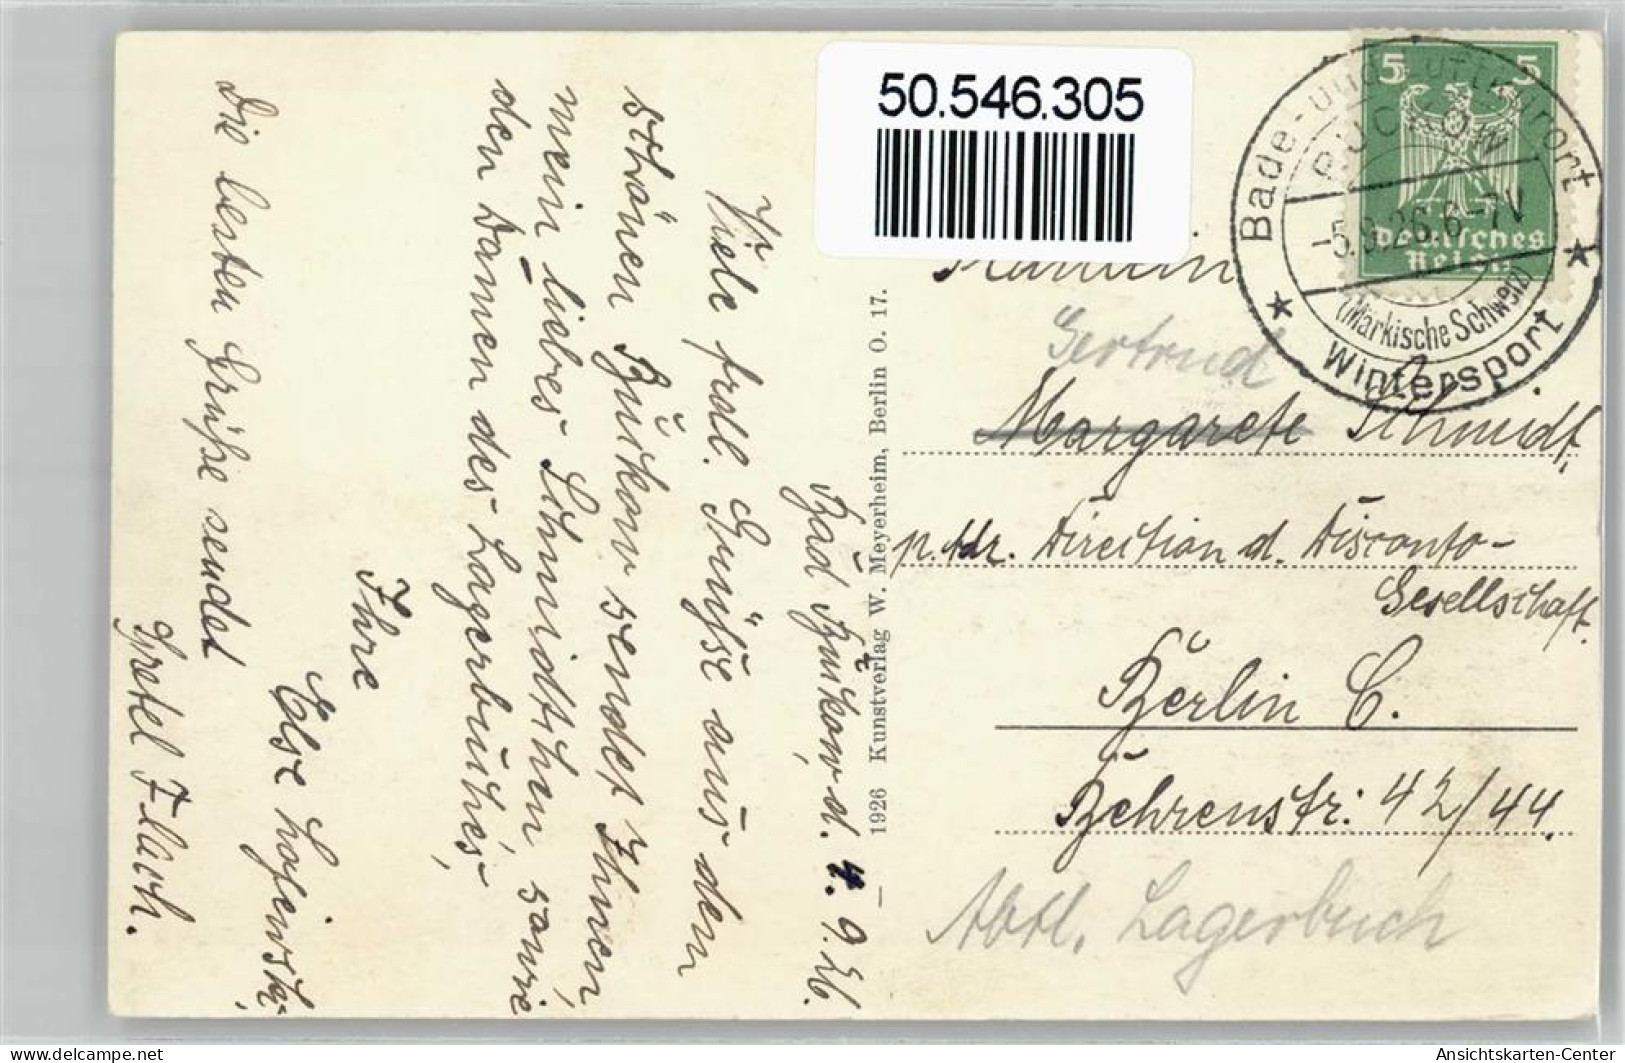 50.546.305
5 5
Deutsches
Reich
Bade- und Luftkurort
BUCKOW
-5.9.26.6-7V
(Märkische Schweiz)
Wintersport
Fräulein
Gertrud
Margarete Schmidt,
p. Adr. Direction d. Disconto-
Gesellschaft.
Berlin C.
Behrenstr: 42/44.
Abtl. Lagerbuch
1926 Kunstverlag W. Meyerheim, Berlin O. 17.
Bad Buckow, d. 4. 9. 26.
Viele frdl. Grüsse aus dem
schönen Buckow sendet Ihnen,
mein liebes Schmidtchen sowie
den Damen des Lagerbuches
Ihre
Else
Die besten Grüße sendet
Gretel Flach.
Ansichtskarten-center.de
Ansichtskarten-Center